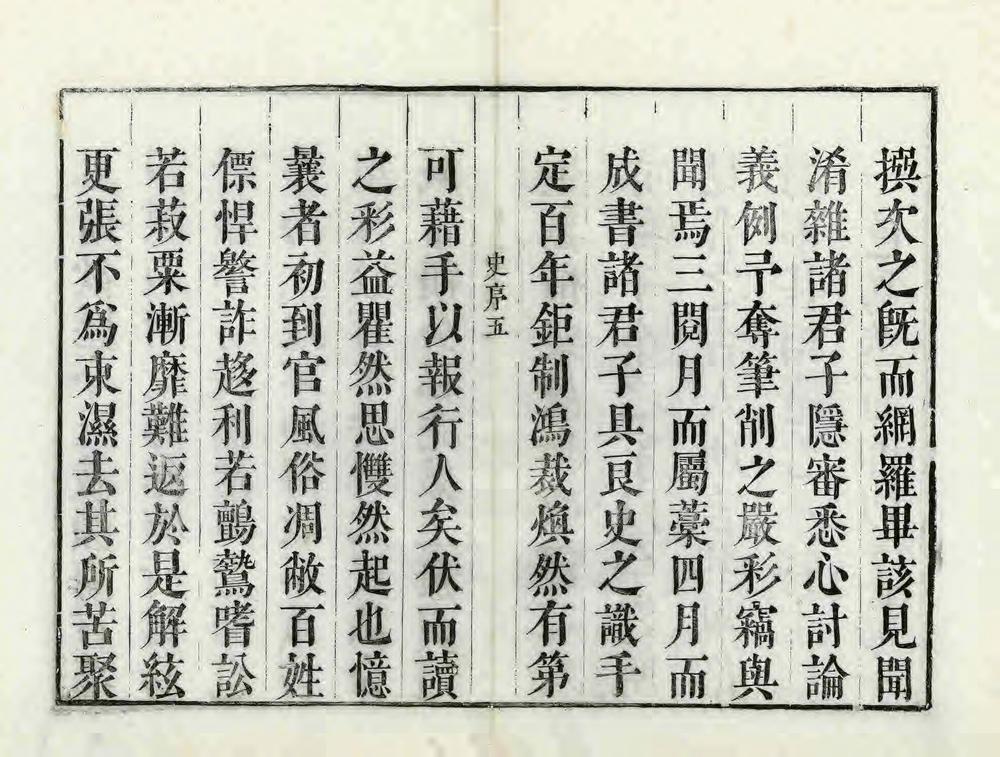 撰次之旣而網羅畢該見聞
淆雜諸君子隱審悉心討論
義例予奪筆削之嚴彩竊與
聞焉三閱月而屬藁四月而
成書諸君子具良史之識手
定百年鉅制鴻裁煥然有第
史序五
可藉手以報行人矣伏而讀
之彩益瞿然思戄然起也憶
曩者初到官風俗凋敝百姓
僄悍譥詐趍利若鸇鷙嗜訟
若菽粟漸靡難返於是解絃
更張不為束濕去其所苦聚